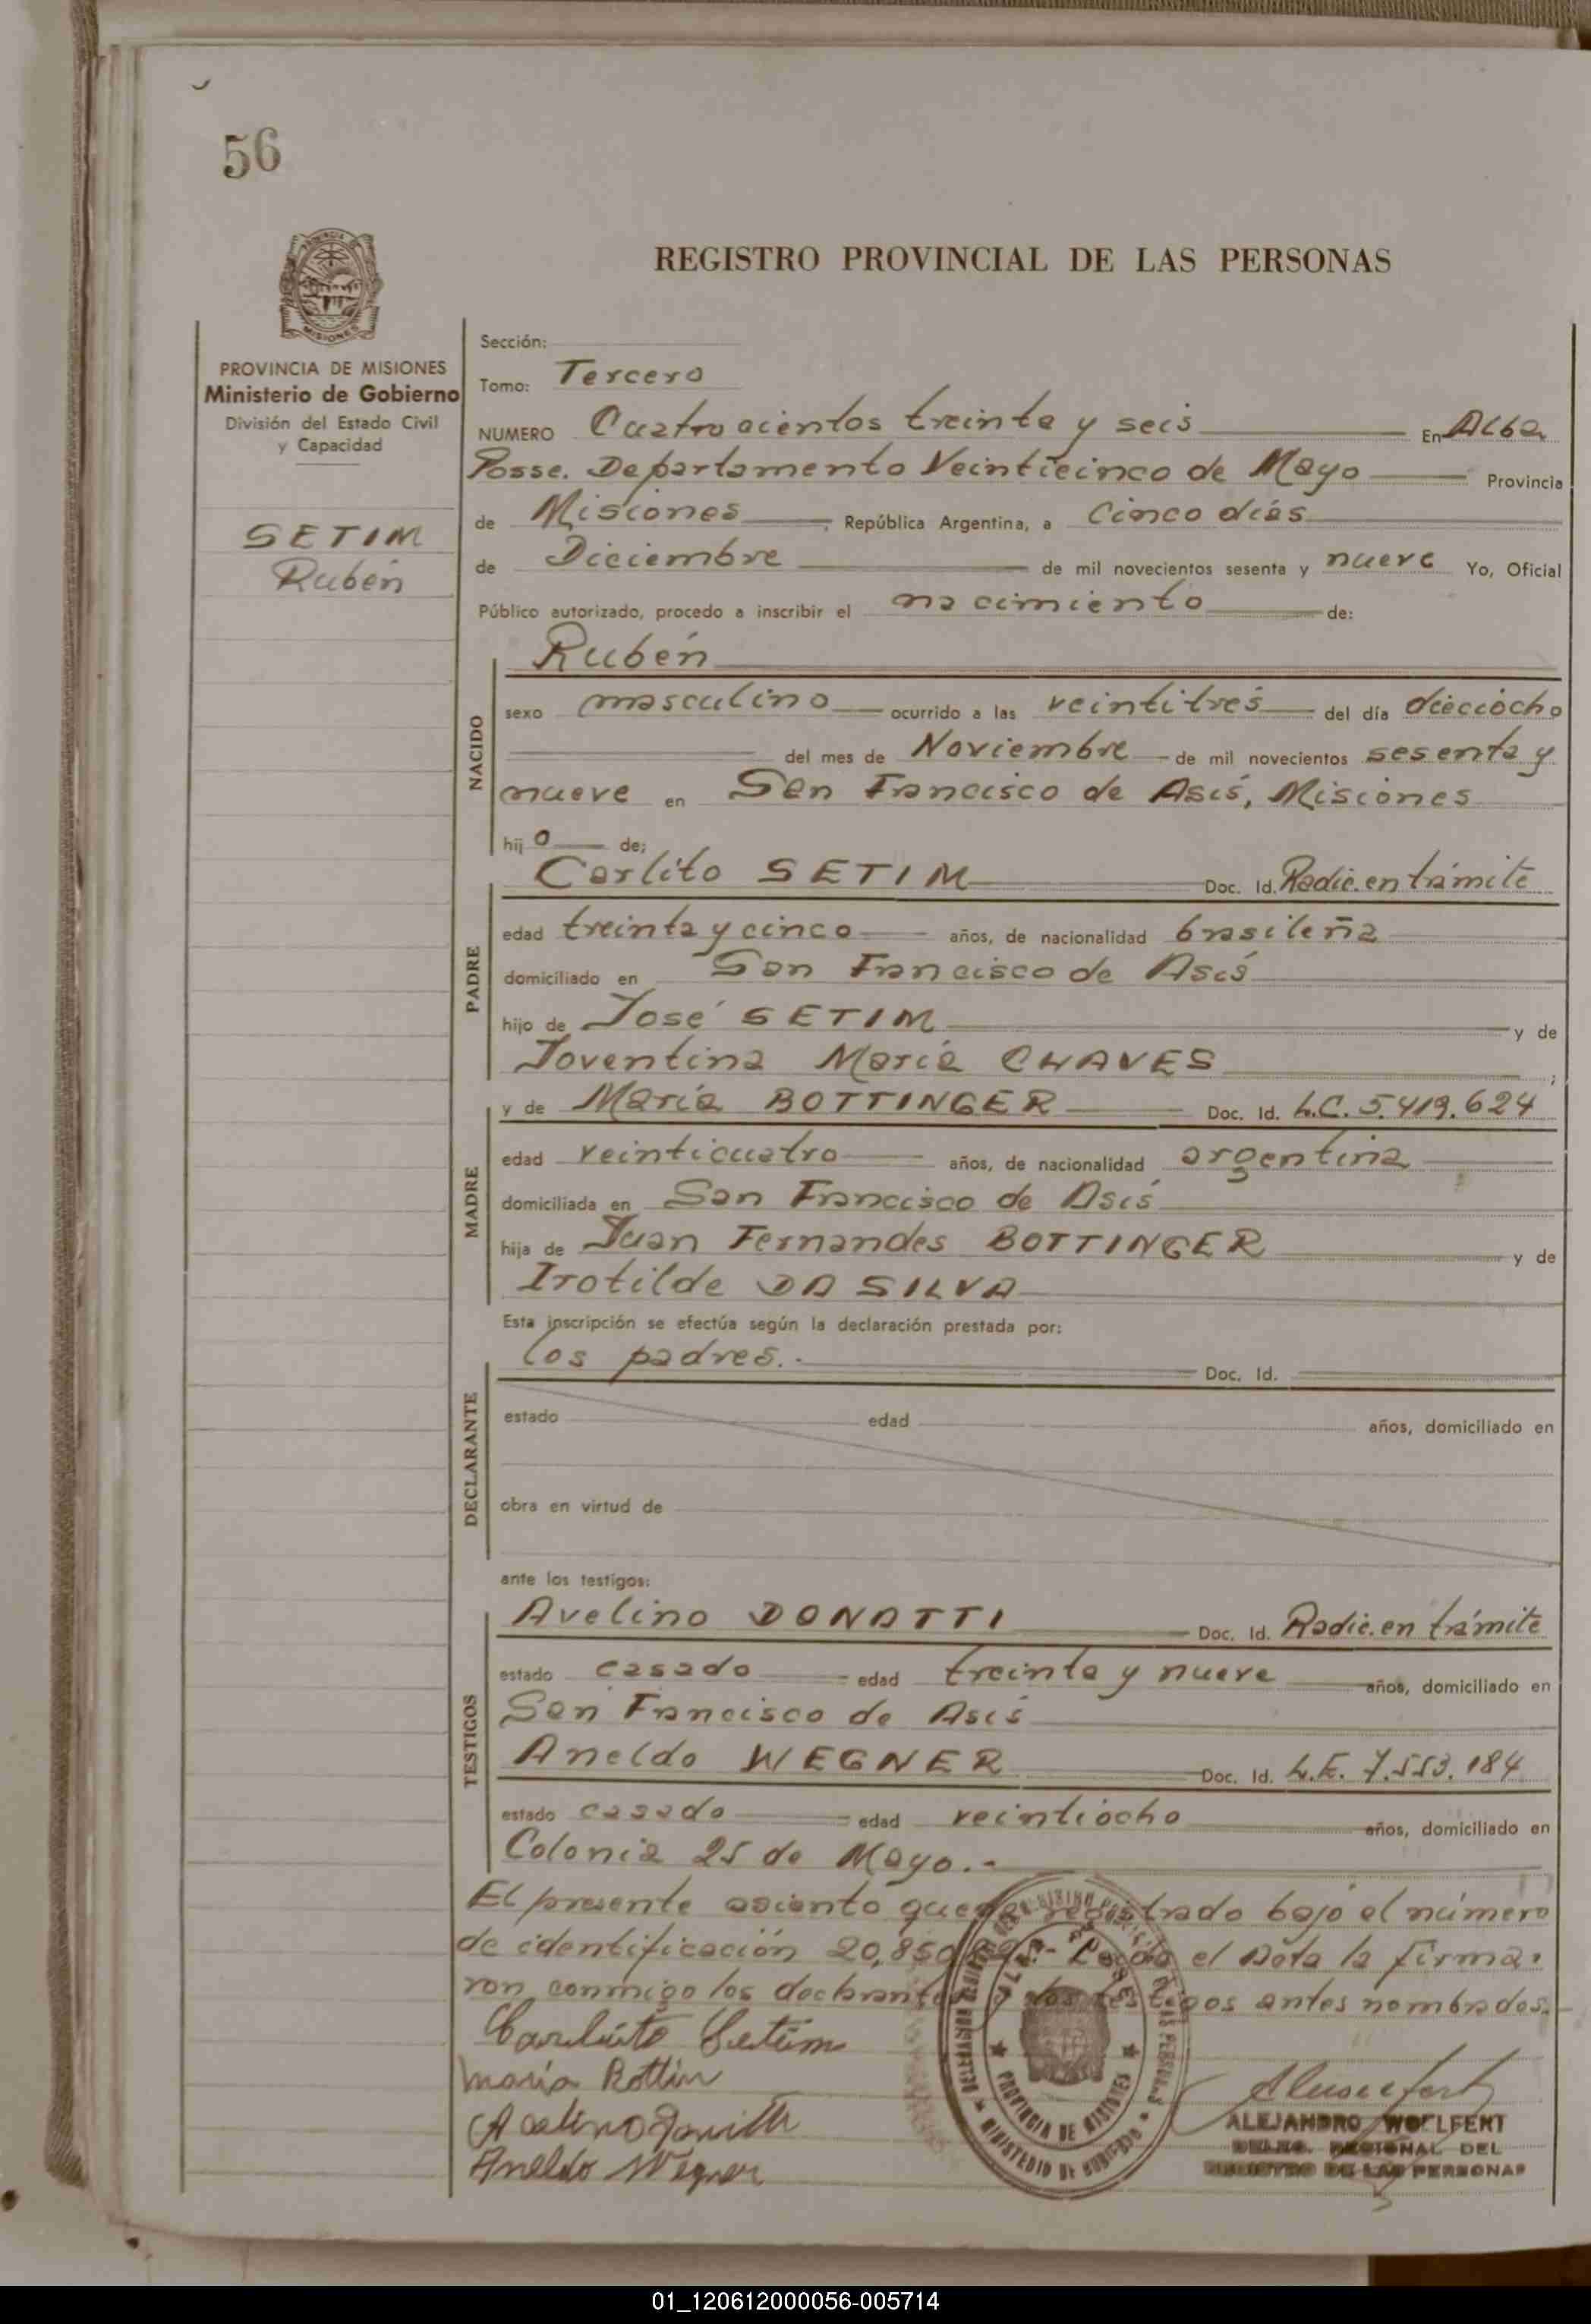 56
REGISTRO PROVINCIAL DE LAS PERSONAS
PROVINCIA DE MISIONES
Ministerio de Gobierno
División del Estado Civil
y Capacidad
SETIM
Rubén
Sección:
Tomo: Tercero
NUMERO Cuatrocientos treinta y seis En Alba
Posse. Departamento Veinticinco de Mayo Provincia
de Misiones, República Argentina, a Cinco días
de Diciembre de mil novecientos sesenta y nueve Yo, Oficial
Público autorizado, procedo a inscribir el nacimiento de:
NACIDO
Rubén
sexo masculino ocurrido a las veintitrés del día dieciocho
del mes de Noviembre de mil novecientos sesenta y
nueve en San Francisco de Asís, Misiones
hij o de:
PADRE
Carlito SETIM Doc. Id. Radic. en trámite
edad treinta y cinco años, de nacionalidad brasileña
domiciliado en San Francisco de Asís
hijo de José SETIM y de
Joventina María CHAVES ;
MADRE
y de María BOTTINGER Doc. Id. L.C. 5.419.624
edad veinticuatro años, de nacionalidad argentina
domiciliada en San Francisco de Asís
hija de Juan Fernandes BOTTINGER y de
Irotilde DA SILVA
Esta inscripción se efectúa según la declaración prestada por:
DECLARANTE
los padres.- Doc. Id.
estado edad años, domiciliado en
obra en virtud de
ante los testigos:
TESTIGOS
Avelino DONATTI Doc. Id. Radic. en trámite
estado casado edad treinta y nueve años, domiciliado en
San Francisco de Asís
Aneldo WEGNER Doc. Id. L.E. 7.553.184
estado casado edad veintiocho años, domiciliado en
Colonia 25 de Mayo.-
El presente asiento queda registrado bajo el número
de identificación el Acta la firma-
ron conmigo los declarantes y los testigos antes nombrados.
Carlito Setim
María
Aneldo Wegner
PROVINCIA DE MISIONES
MINISTERIO DE
ALEJANDRO WOLFERT
REGIONAL DEL
REGISTRO DE LAS PERSONAS
01_120612000056-005714